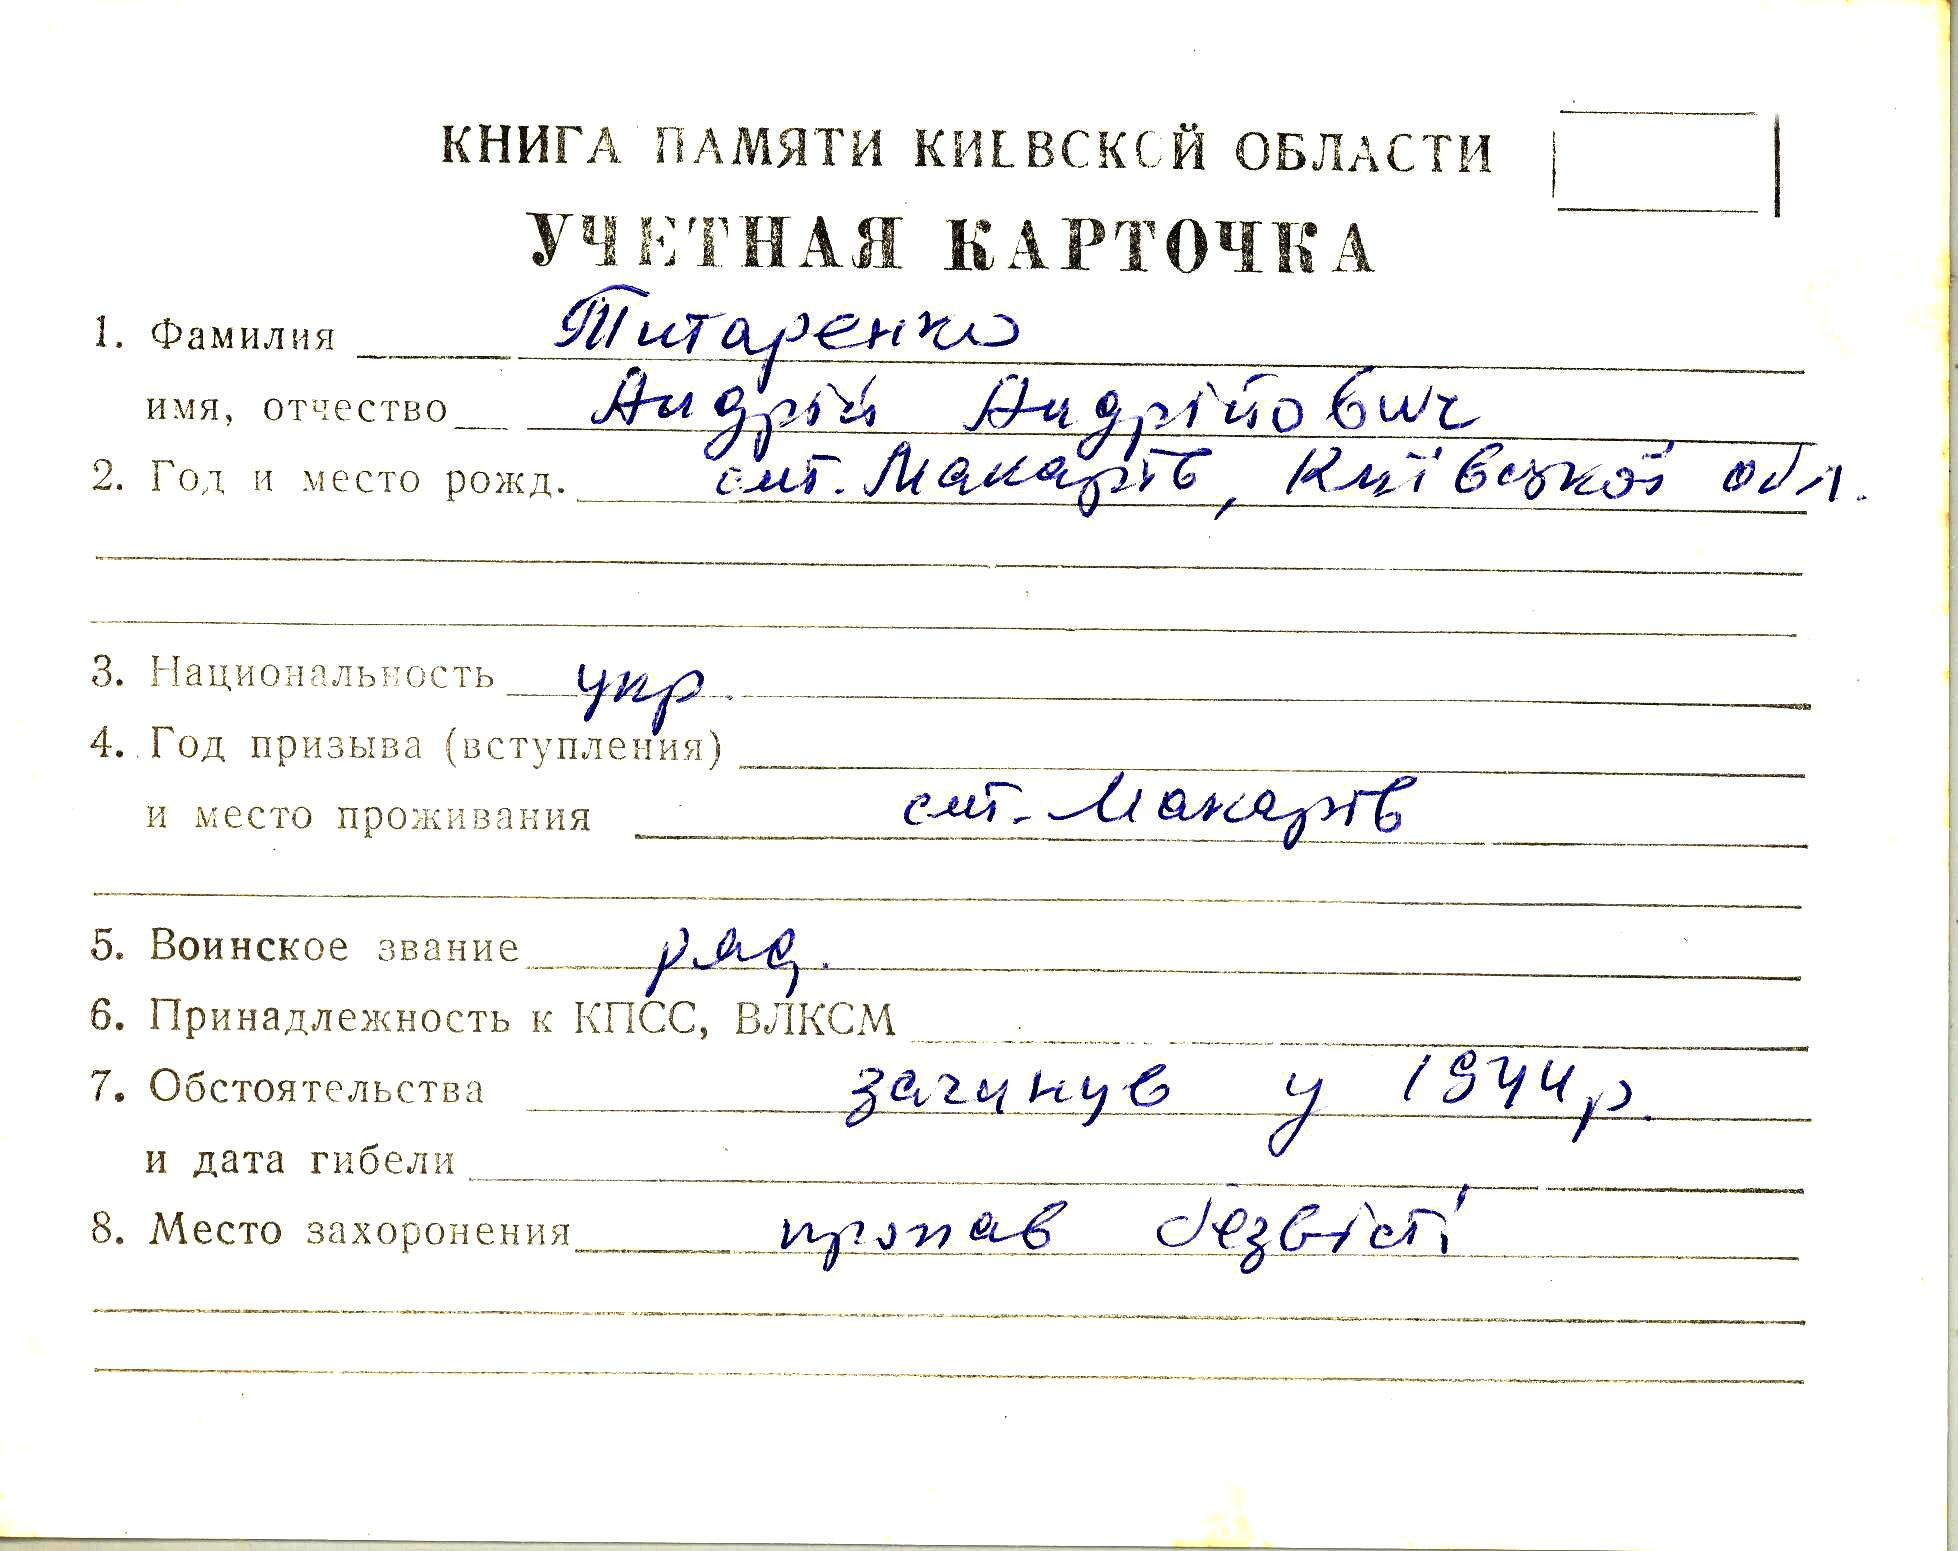 КНИГА ПАМЯТИ КИЕВСКОЙ ОБЛАСТИ
УЧЕТНАЯ КАРТОЧКА
1. Фамилия Титаренко
имя, отчество Андрій Андрійович
2. Год и место рожд. смт. Макарів, Київської обл.
3. Национальность укр.
4. Год призыва (вступления)
и место проживания смт. Макарів
5. Воинское звание ряд.
6. Принадлежность к КПСС, ВЛКСМ
7. Обстоятельства загинув у 1944 р.
и дата гибели
8. Место захоронения пропав безвісті